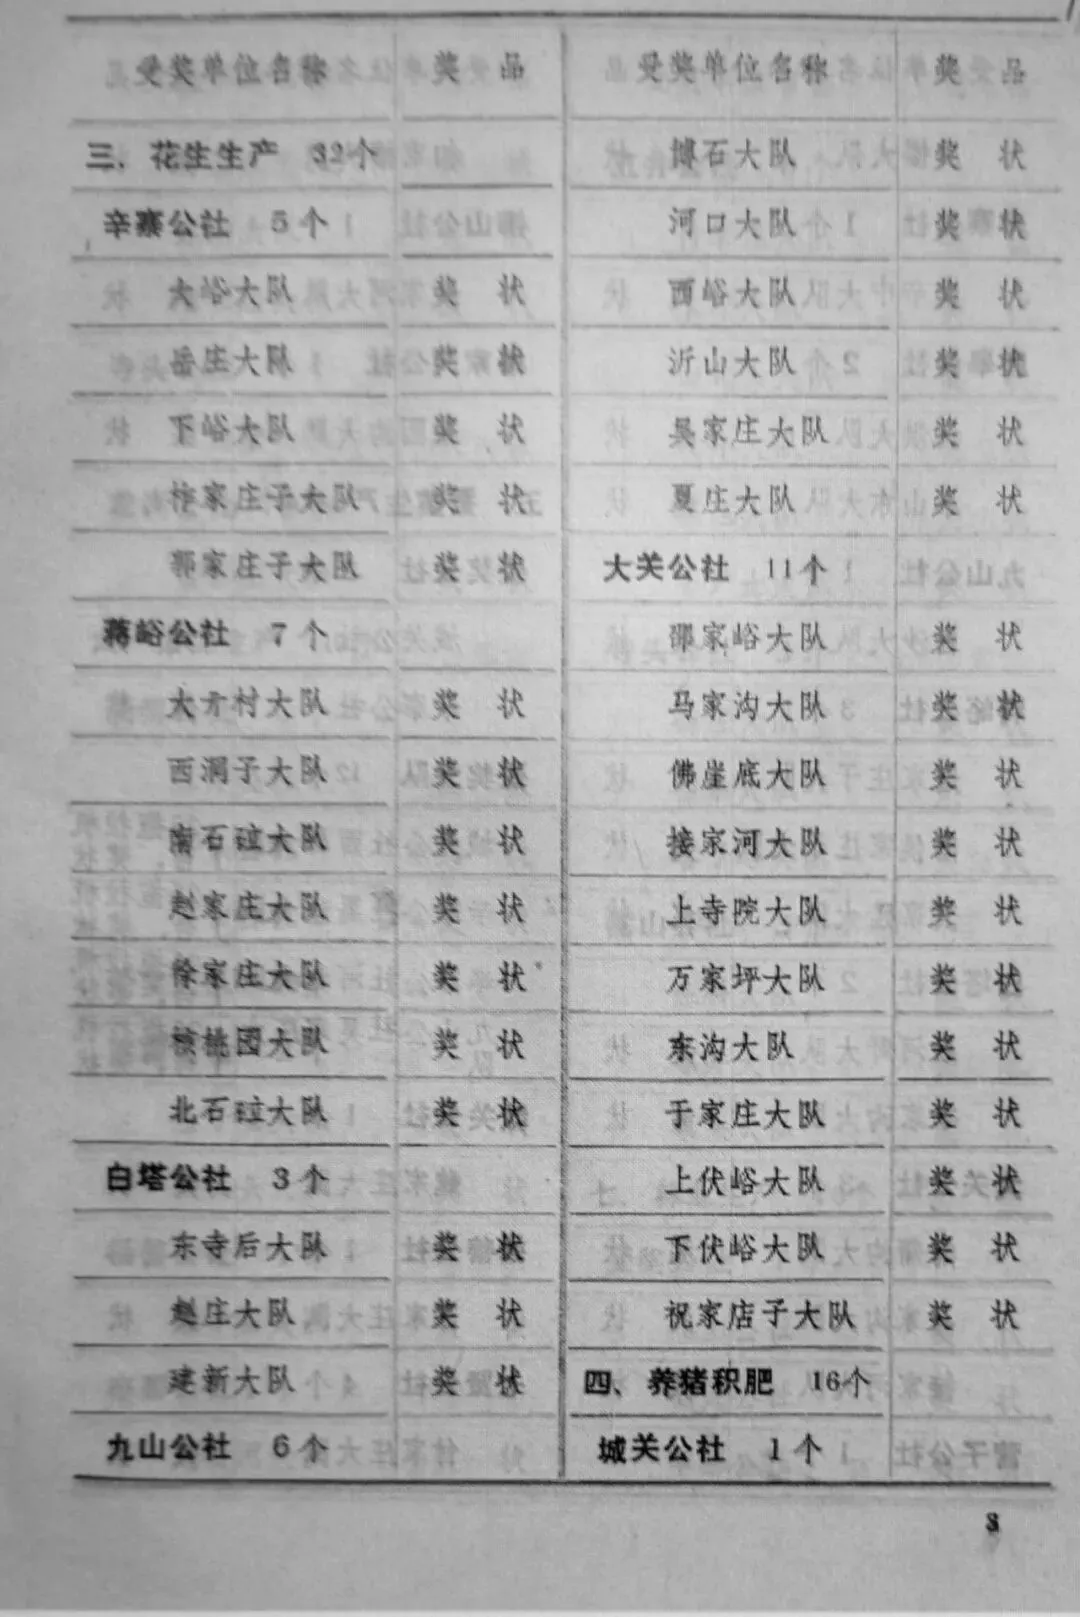 受奖单位名称 奖 品
三．花生生产 32个
辛寨公社 5个
大峪大队 奖 状
岳庄大队 奖 状
下峪大队 奖 状
柞家庄子大队 奖 状
郭家庄子大队 奖 状
蒋峪公社 7个
大亓村大队 奖 状
西涧子大队 奖 状
南石砬大队 奖 状
赵家庄大队 奖 状
徐家庄大队 奖 状
核桃园大队 奖 状
北石砬大队 奖 状
白塔公社 3个
东寺后大队 奖 状
赵庄大队 奖 状
建新大队 奖 状
九山公社 6个
受奖单位名称 奖 品
博石大队 奖 状
河口大队 奖 状
西峪大队 奖 状
沂山大队 奖 状
吴家庄大队 奖 状
夏庄大队 奖 状
大关公社 11个
邵家峪大队 奖 状
马家沟大队 奖 状
佛崖底大队 奖 状
接家河大队 奖 状
上寺院大队 奖 状
万家坪大队 奖 状
东沟大队 奖 状
于家庄大队 奖 状
上伏峪大队 奖 状
下伏峪大队 奖 状
祝家店子大队 奖 状
四、养猪积肥 16个
城关公社 1个